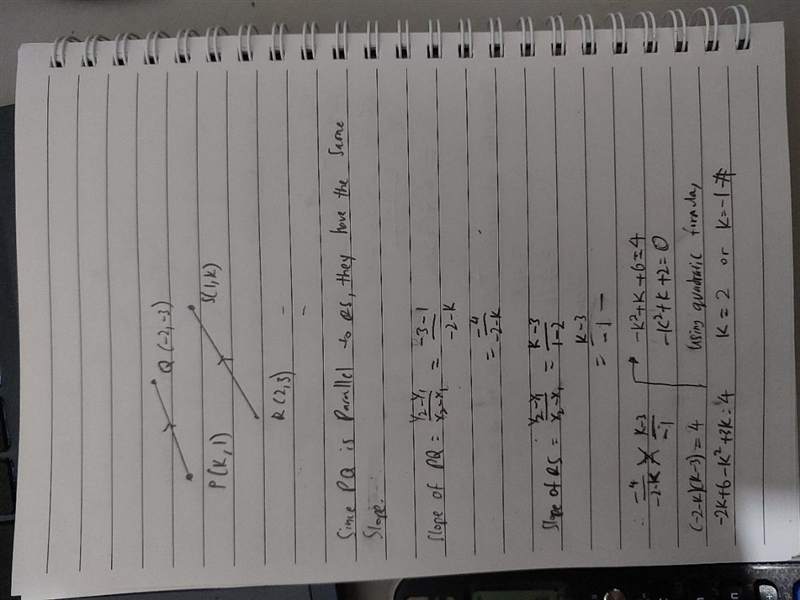 Q (-2,-3)
P(K,1)
S(1,K)
R(2,3)
Since PQ is Parallel to RS, they have the Same
Slope.
Slope of PQ = y₂-y₁/x₂-x₁ = -3-1/-2-K
= -4/-2-K
Slope of RS = y₂-y₁/x₂-x₁ = K-3/1-2
= K-3/-1
∴ -4/-2-K = K-3/-1
(-2-K)(K-3)=4
-2K+6-K²+3K=4
-K²+K+6=4
-K²+K+2=0
Using quadratic formula,
K=2 or K=-1 #